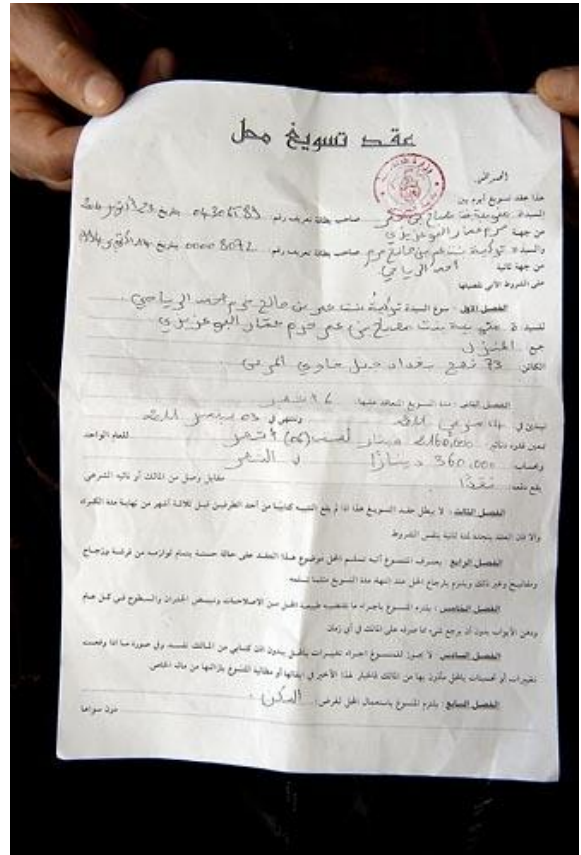 عقد تسويغ محل
الحمد لله،
هذا عقد تسويغ أبرم بين
السيدة صاحب بطاقة تعريف رقم 04306589 بتاريخ 23 أكتوبر
من جهة حرم عمار البوعزيزي
والسيدة تركية بنت عمر بن صالح حرم صاحب بطاقة تعريف رقم 00008092 بتاريخ 1994
من جهة ثانية أحمد الرياحي
على الشروط الآتي تفصيلها
الفصل الأول : سوغ السيدة تركية بنت عمر بن صالح حرم أحمد الرياحي
للسيدة بنت مصباح بن عمر حرم عمار البوعزيزي
جميع المنزل
الكائن 73 نهج بغداد المرسى
الفصل الثاني : مدة التسويغ المتعاقد عليها
تبتدئ في وتنتهي في
بثمن قدره دنانير 2160,000 دينار (06) أشهر للعام الواحد
وبحساب 360,000 دينارًا في الشهر
يقع دفعه نقدًا مقابل وصل من المالك أو نائبه الشرعي
الفصل الثالث : لا يبطل عقد التسويغ هذا إذا لم يقع التنبيه كتابيا من أحد الطرفين قبل ثلاثة أشهر من نهاية مدة الكراء
وإلا فإن العقد يتجدد لمدة ثانية بنفس الشروط
الفصل الرابع : يعترف المتسوغ أنه تسلم المحل موضوع هذا العقد على حالة حسنة بتمام لوازمه من وزجاج
ومفاتيح وغير ذلك ويلتزم بإرجاع المحل عند انتهاء مدة التسويغ مثلما تسلمه
الفصل الخامس : يلتزم المتسوغ بإجراء ما تقتضيه طبيعة المحل من الاصلاحات وتبييض الجدران والسطوح في كل عام
ودهن الأبواب بدون أن يرجع بشيء مما صرفه على المالك في أي زمان
الفصل السادس : لا يجوز للمتسوغ اجراء تغييرات بالمحل بدون اذن كتابي من المالك نفسه وفي صورة ما إذا وقعت
تغييرات أو تحسينات بالمحل مأذون بها من المالك فالخيار لهذا الأخير في ابقائها أو مطالبة المتسوغ بإزالتها من ماله الخاص
الفصل السابع : يلتزم المتسوغ باستعمال المحل لغرض : السكن
دون سواها